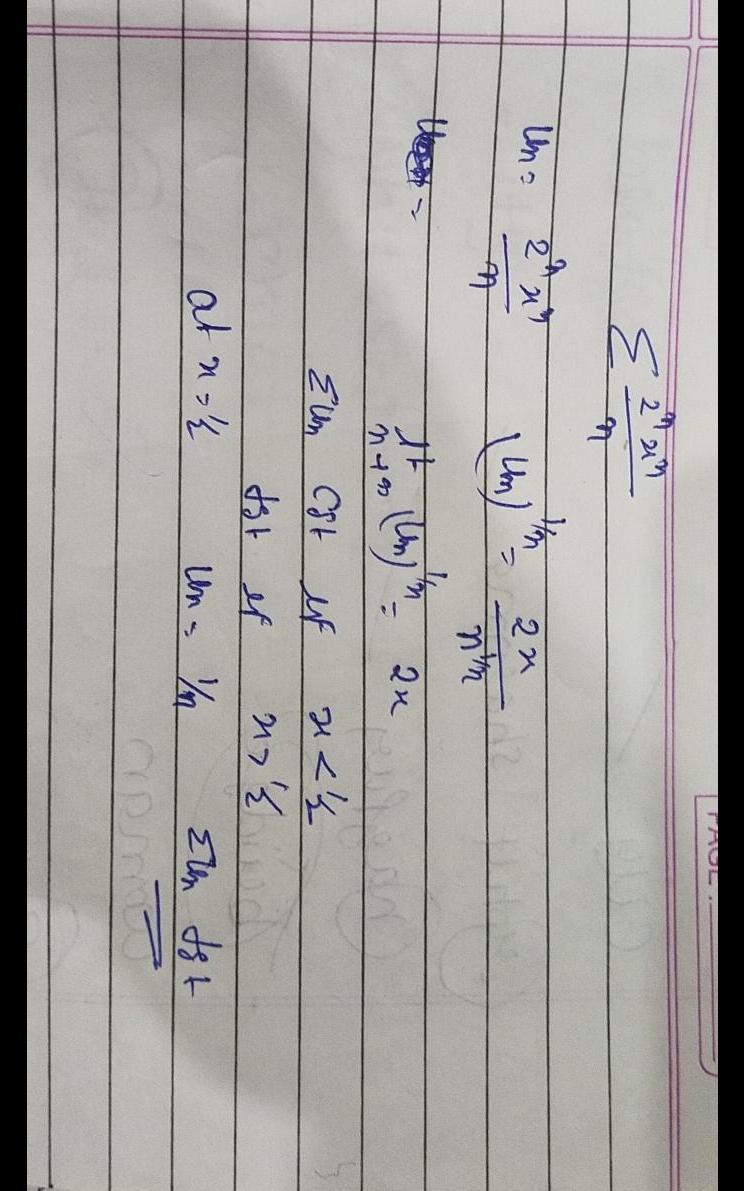 PAGE:
Σ 2ⁿxⁿ/n
Un = 2ⁿxⁿ/n (Un)^1/n = 2x/n^1/n
=
lt n→∞ (Un)^1/n = 2x
ΣUn cgt if x < ½
dgt if x > ½
at x = ½ Un = 1/n ΣUn dgt